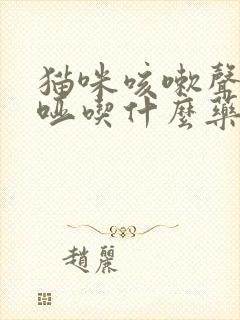 猫咪咳嗽聲
啞喫什麼藥
趙麗